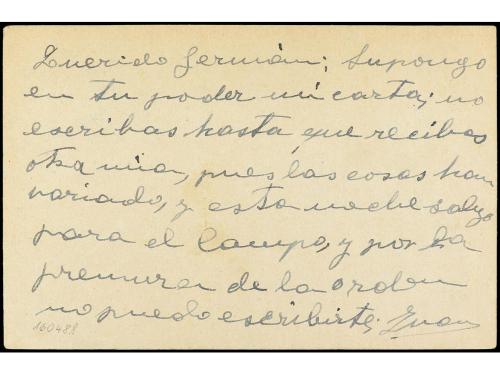 Querido Germán; Supongo
en tu poder mi carta; no
escribas hasta que recibas
otra mia, pues las cosas han
variado, y esta noche salgo
para el Campo, y por la
premura de la orden
no puedo escribirte; Juan
160488